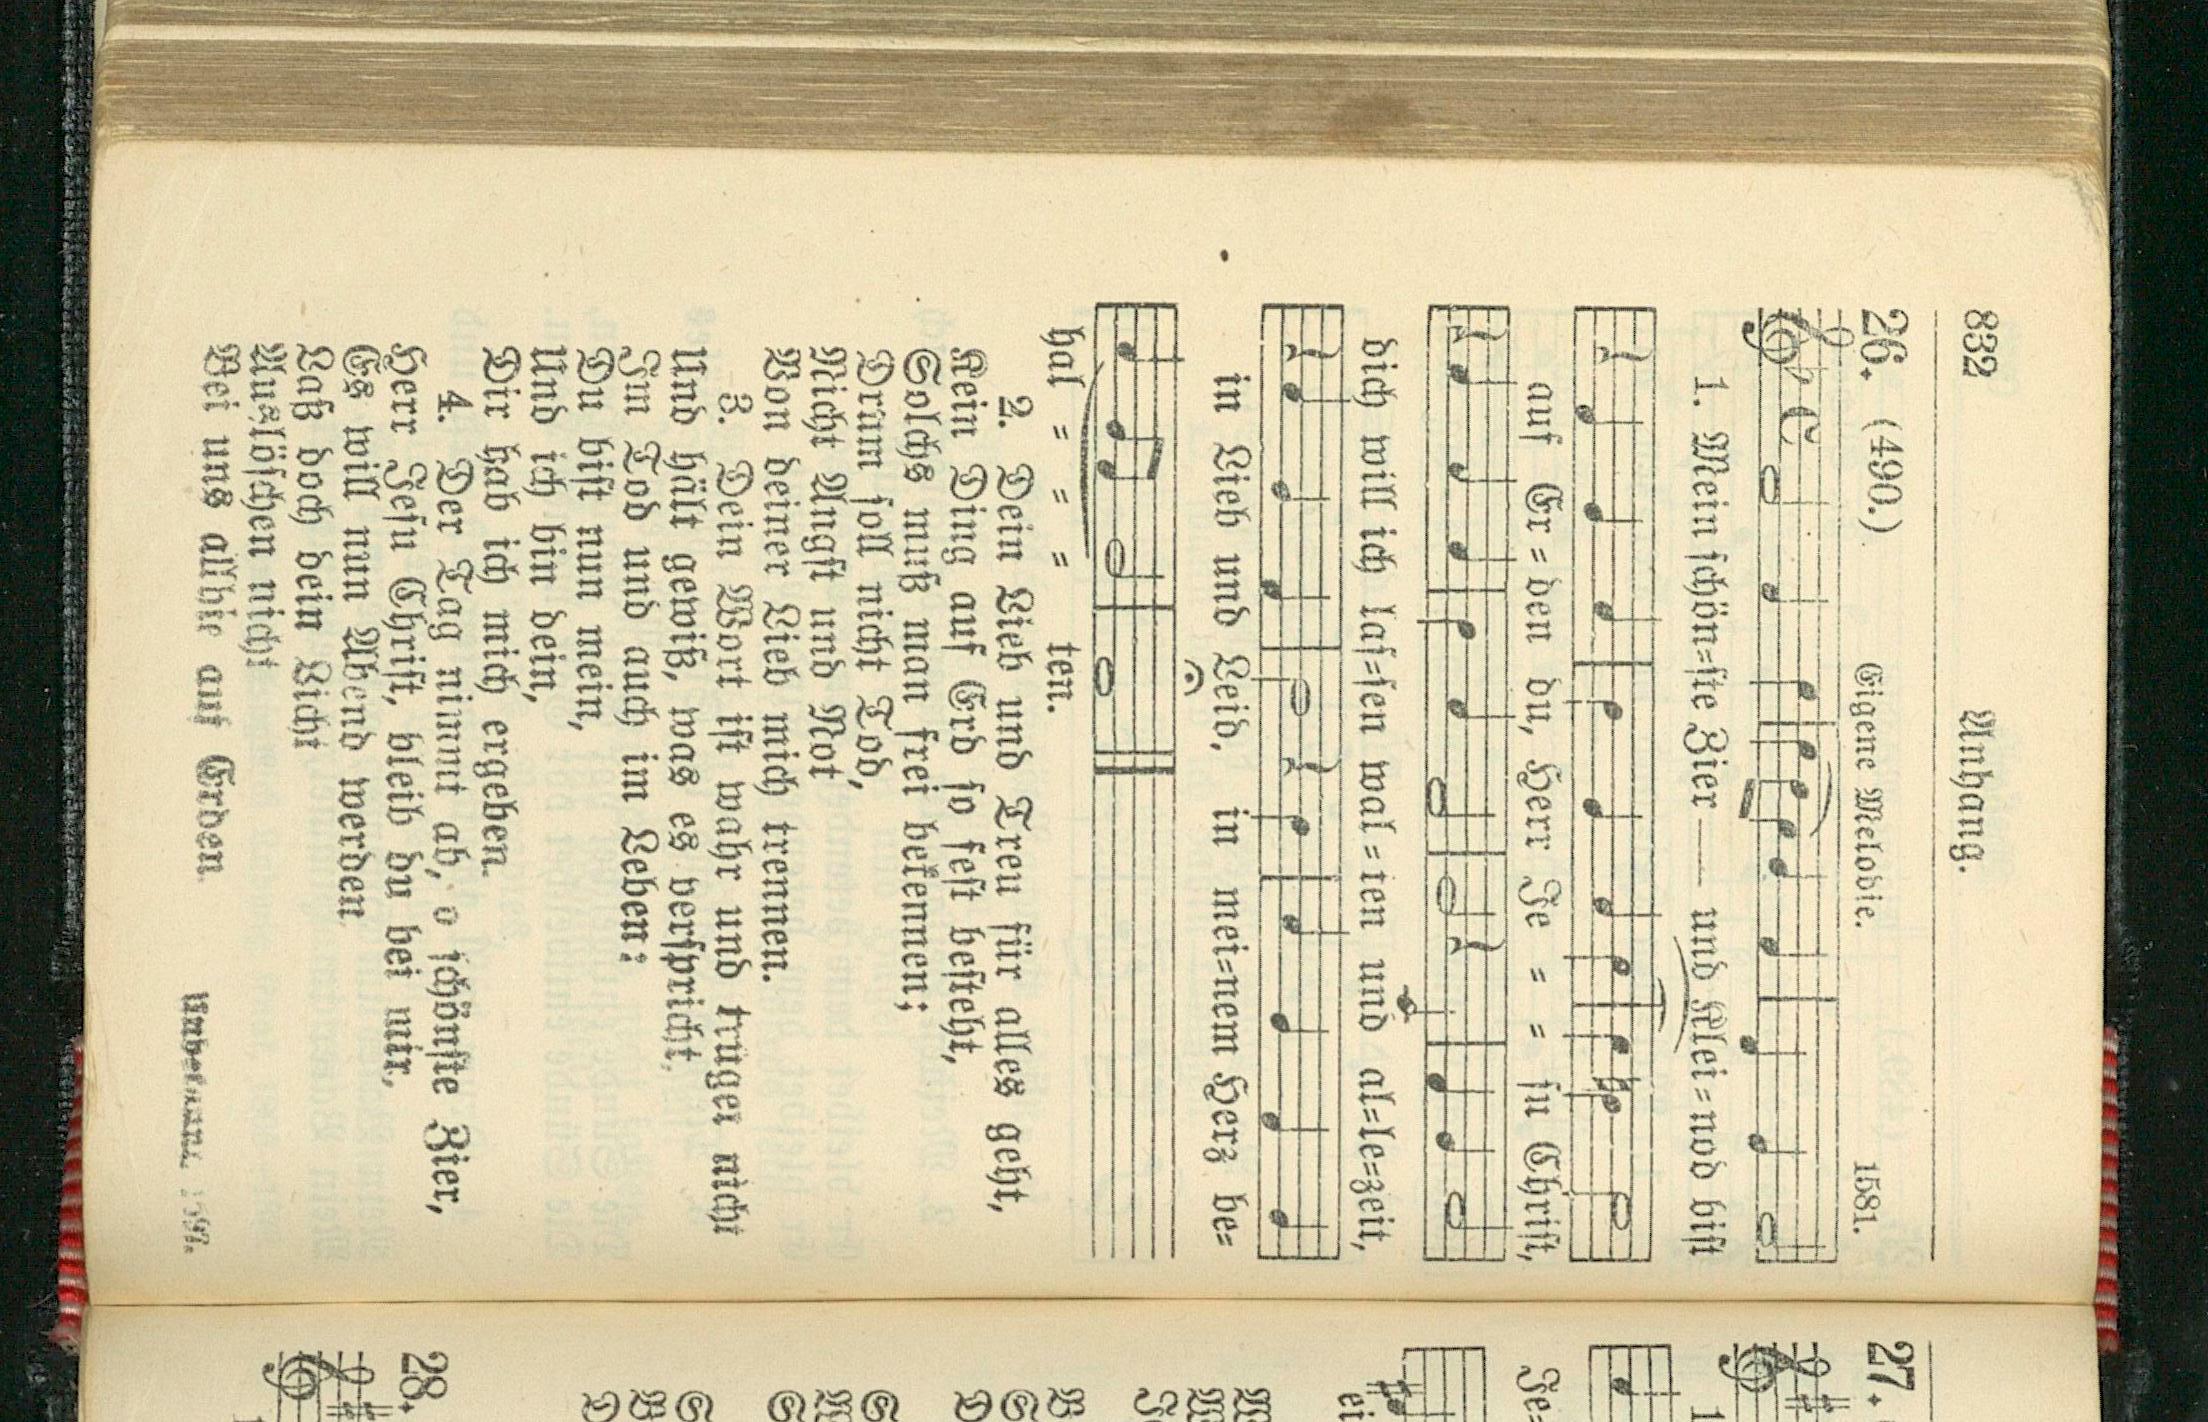 832
Anhang.
26. (490.)
Eigene Melodie.
1581.
1. Mein schön=ste Zier — und Klei=nod bist
auf Er = den du, Herr Je = = su Christ,
dich will ich las=sen wal = ten und al=le=zeit,
in Lieb und Leid, in mei=nem Herz be=
hal = = = ten.
2. Dein Lieb und Treu für alles geht,
Kein Ding auf Erd so fest besteht,
Solchs muß man frei bekennen;
Drum soll nicht Tod,
Nicht Angst und Not
Von deiner Lieb mich trennen.
3. Dein Wort ist wahr und trüget nicht
Und hält gewiß, was es verspricht,
Im Tod und auch im Leben:
Du bist nun mein,
Und ich bin dein,
Dir hab ich mich ergeben.
4. Der Tag nimmt ab, o schönste Zier,
Herr Jesu Christ, bleib du bei mir,
Es will nun Abend werden
Laß doch dein Licht
Auslöschen nicht
Bei uns allhie auf Erden.
Unbekannt 1597.
27.
Je=
28.